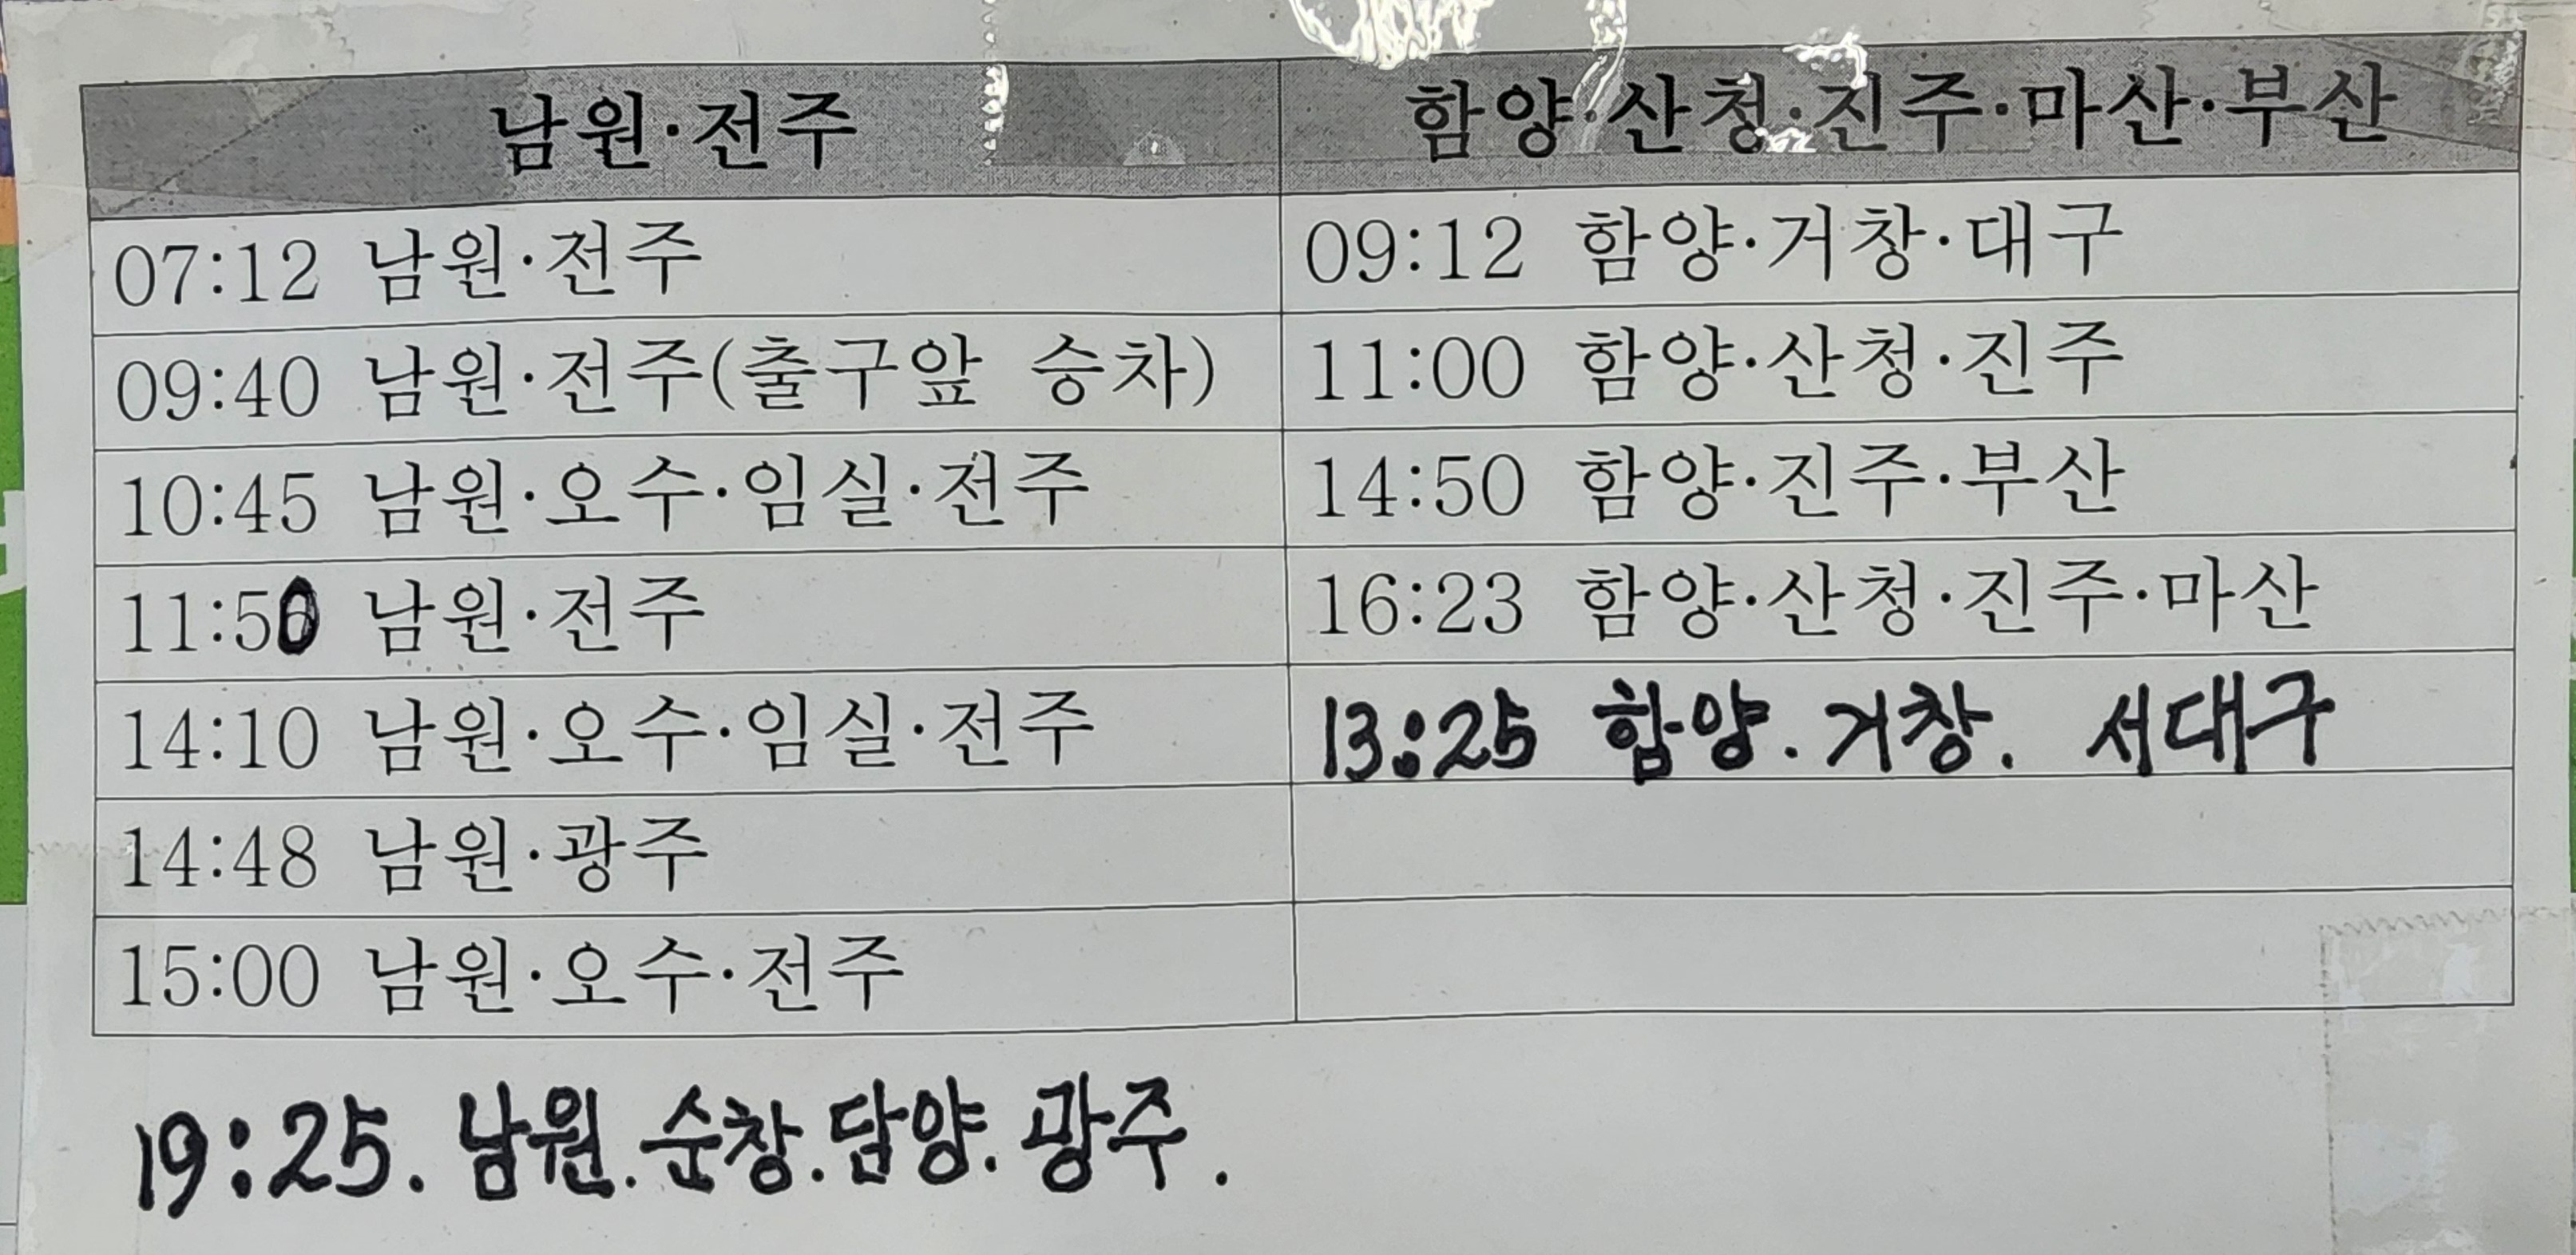 남원·전주
07:12 남원·전주
09:40 남원·전주(출구앞 승차)
10:45 남원·오수·임실·전주
11:50 남원·전주
14:10 남원·오수·임실·전주
14:48 남원·광주
15:00 남원·오수·전주
19:25. 남원.순창.담양.광주.
함양·산청·진주·마산·부산
09:12 함양·거창·대구
11:00 함양·산청·진주
14:50 함양·진주·부산
16:23 함양·산청·진주·마산
13:25 함양.거창. 서대구